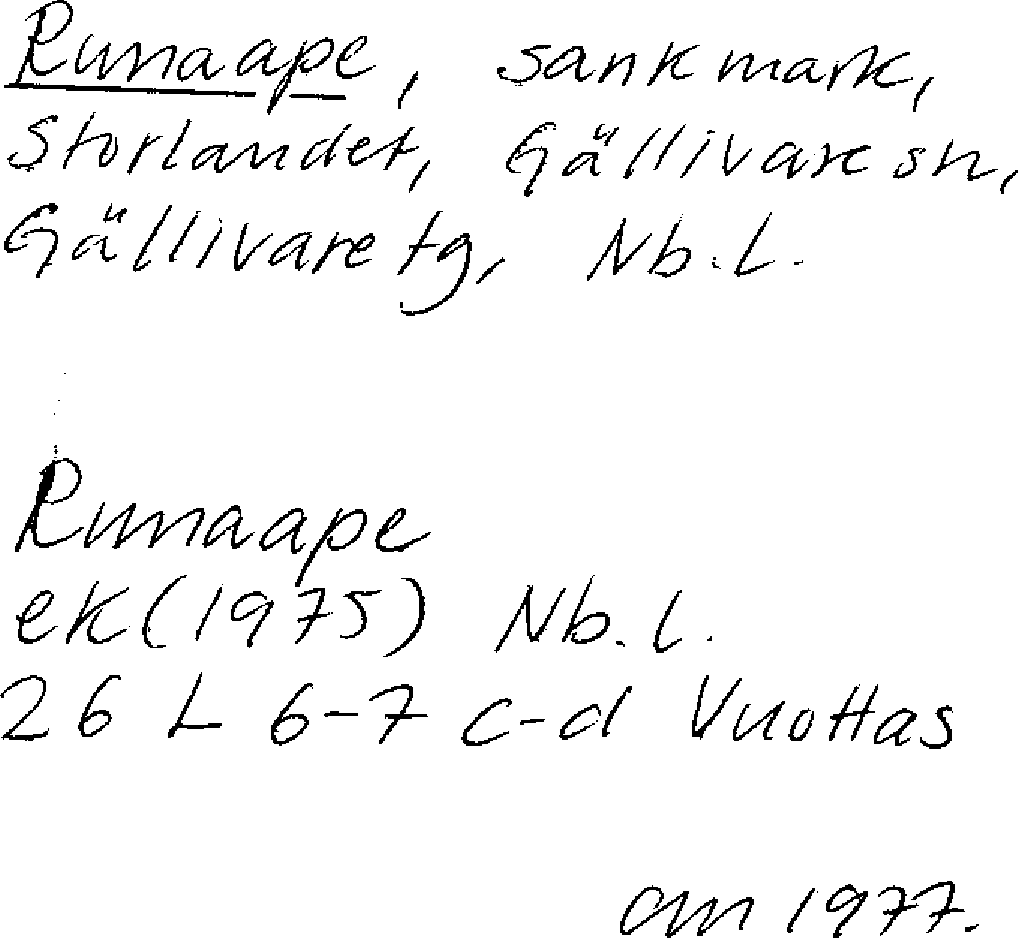 Runaape, sankmark,
Storlandet, Gällivare sn,
Gällivare tg, Nb.L.
Runaape
ek (1975) Nb.l.
26 L 6-7 c-d Vuottas
am 1977.